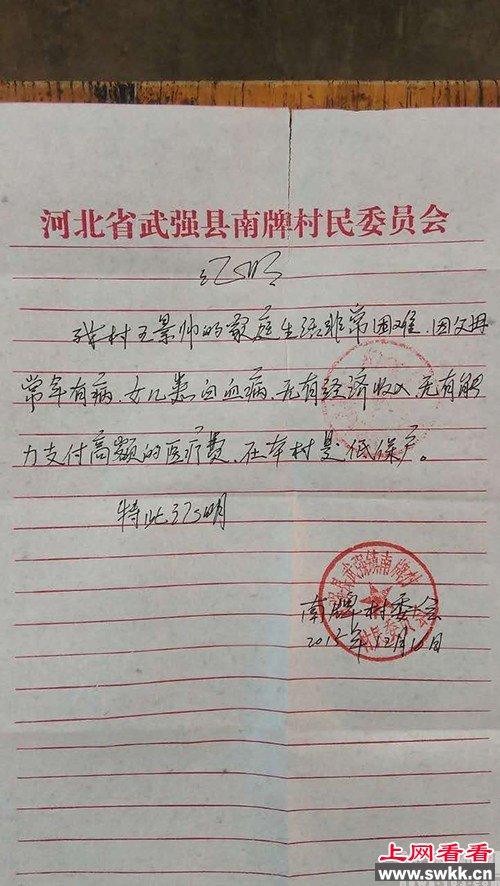 河北省武强县南牌村民委员会
证明
我村王景帅的家庭生活非常困难，因父母
常年有病、女儿患白血病、无有经济收入、无有能
力支付高额的医疗费、在本村是低保户。
特此证明
南牌村委会
2015年12月10日
上网看看
www.swkk.cn